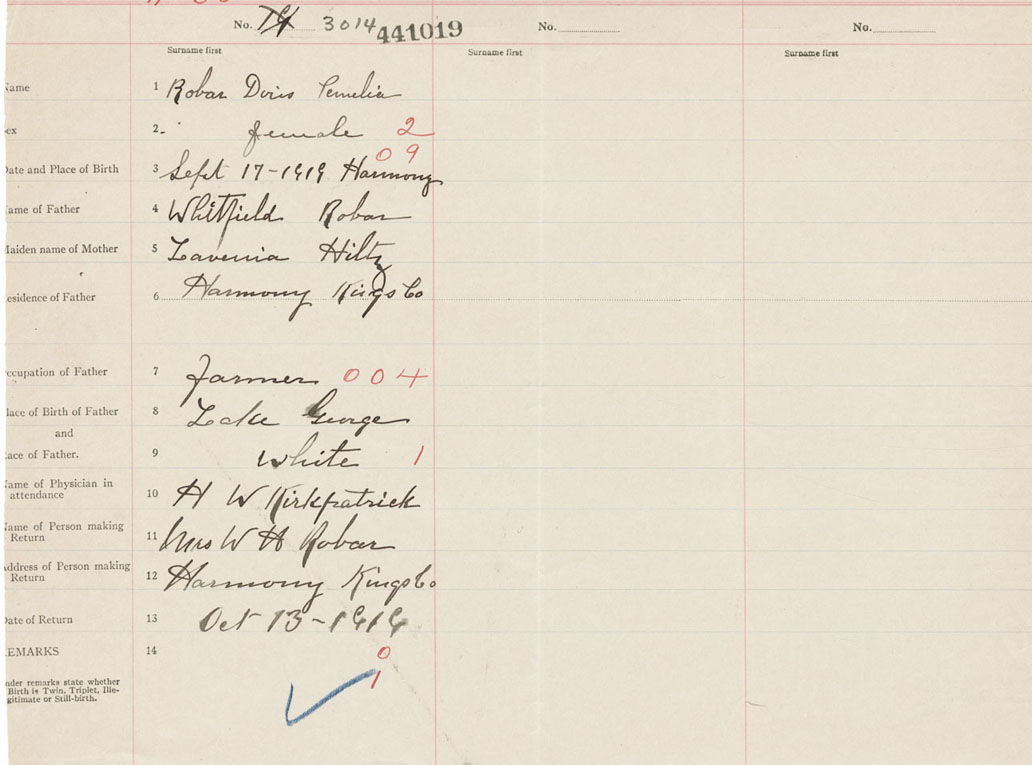 No. 74 3014 441019 No. No.
Surname first Surname first Surname first
ame 1 Robar Doris Pemelia
ex 2. female 2
0 9
ate and Place of Birth 3 Sept 17-1919 Harmony
ame of Father 4 Whitfield Robar
aiden name of Mother 5 Lavenia Hiltz
esidence of Father 6 Harmony Kings Co
ccupation of Father 7 Farmer 004
lace of Birth of Father 8 Lake George
and
ace of Father. 9 White 1
ame of Physician in
attendance 10 H W Kirkpatrick
ame of Person making
Return 11 Mrs W H Robar
ddress of Person making
Return 12 Harmony Kings Co
ate of Return 13 Oct 13-1919
EMARKS 14 0
1
nder remarks state whether
Birth is Twin, Triplet, Ille-
gitimate or Still-birth.